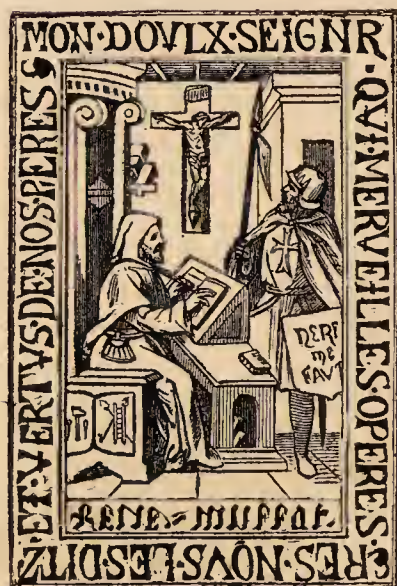 MON·DOVLX·SEIGNR
·QVI·MERVEILLES OPERES·
NOVS·LES·DITZ
·ET·VERTVS·DE·NOS·PERES
INRI
NERF
ME
FAVT
RENE = MUFFAT.